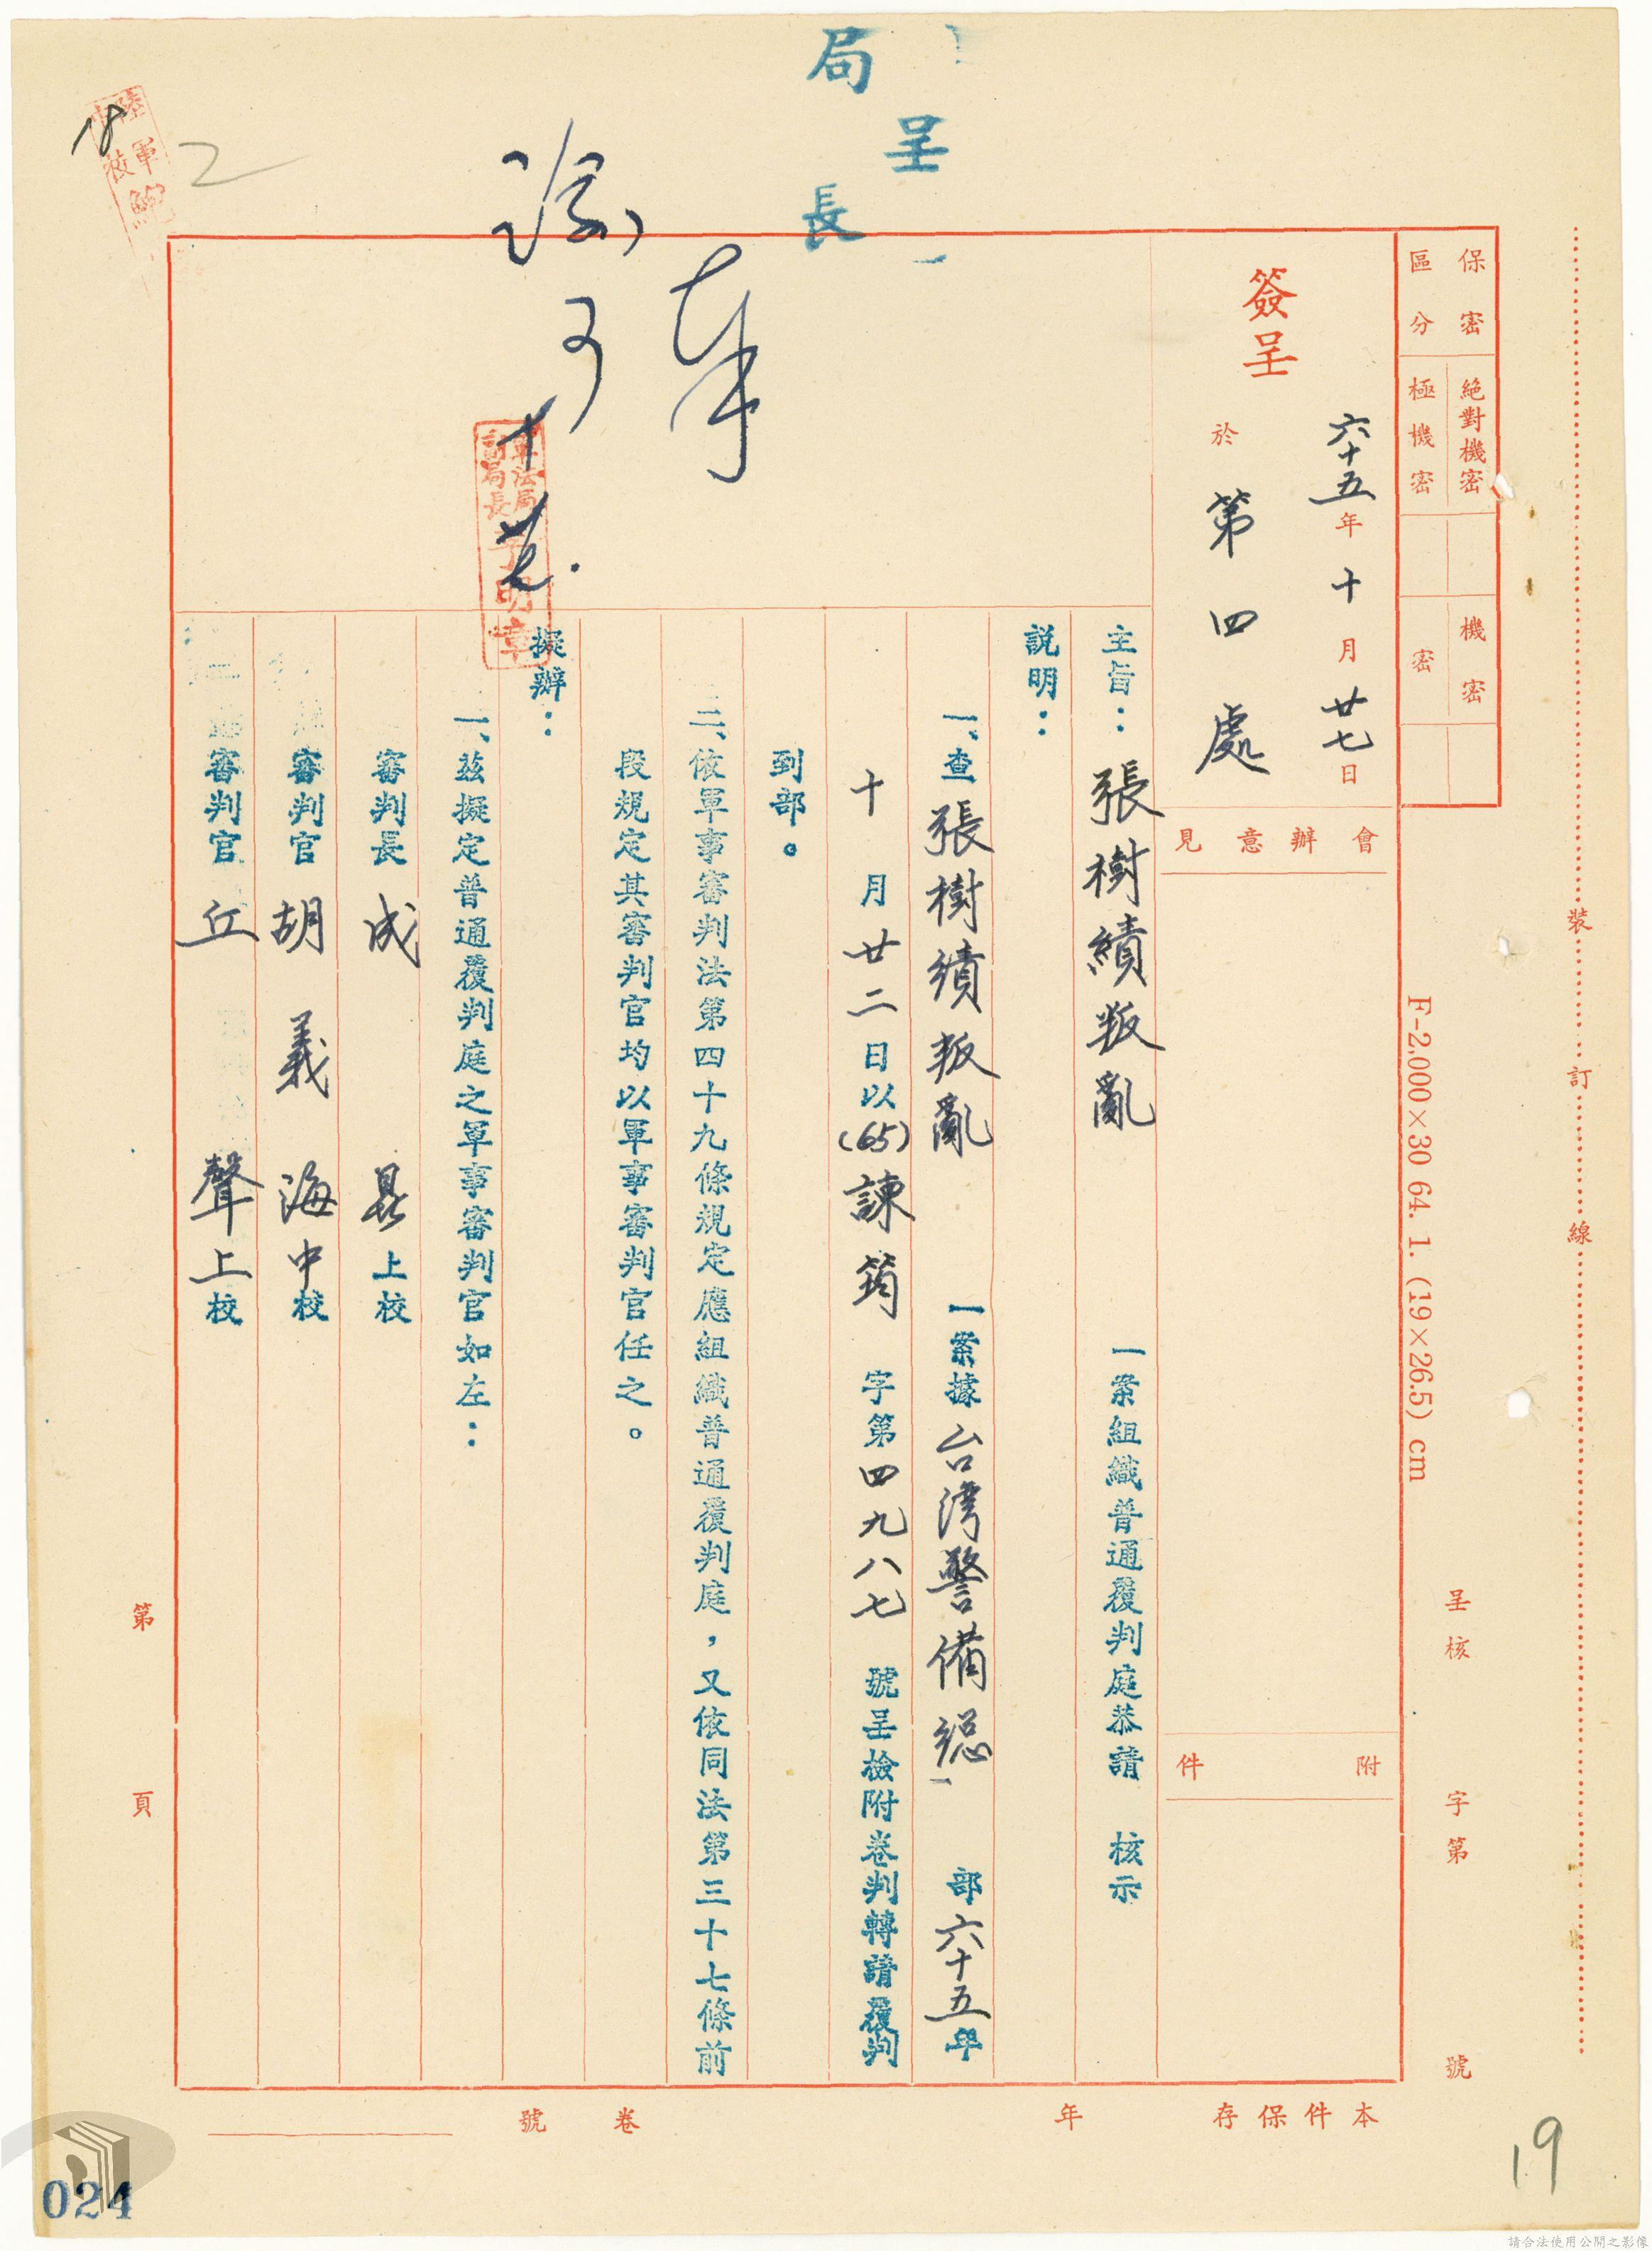 裝訂線
呈核 字第 號
保密 絕對機密 機密
區分 極機密 密
F-2,000×30 64. 1. (19×26.5) cm
簽呈
六十五年十月廿七日
於 第四處
會辦意見
附件
呈
局長
主旨：張樹績叛亂 一案組織普通覆判庭恭請 核示
說明：
一、查張樹績叛亂 一案據台湾警備総 部六十五年
十月廿二日以(65)諫筠 字第四九八七 號呈檢附卷判轉請覆判
到部。
二、依軍事審判法第四十九條規定應組織普通覆判庭，又依同法第三十七條前
段規定其審判官均以軍事審判官任之。
擬辦：
一、茲擬定普通覆判庭之軍事審判官如左：
審判長 成 晸 上校
審判官 胡義海 中校
審判官 丘 聲 上校
可
第 頁
本件保存 年
卷 號
18
2
19
024
請合法使用公開之影像